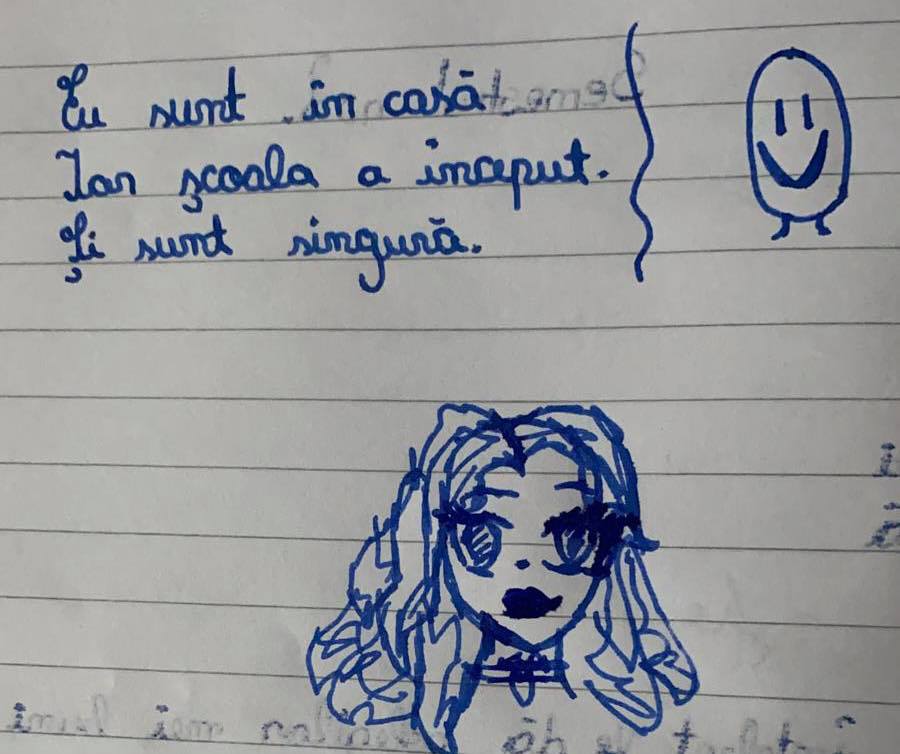 Eu sunt în casă
Iar școala a inceput.
Și sunt singură.